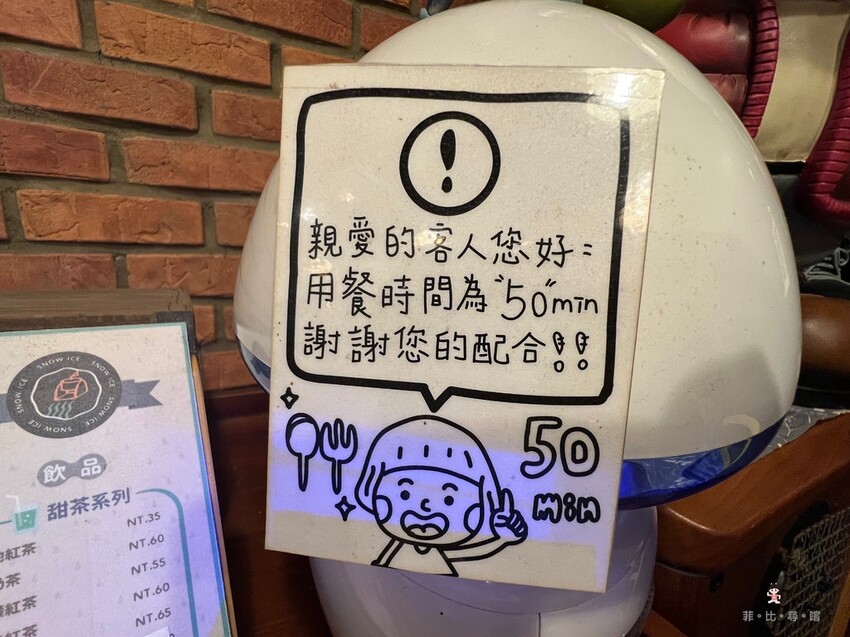 !
親愛的客人您好：
用餐時間為"50"min
謝謝您的配合!!
50
min
SNOW ICE · SNOW ICE · SNOW ICE · SNOW ICE
飲品
甜茶系列
紅茶 NT.35
茶 NT.60
紅茶 NT.55
紅茶 NT.60
紅茶 NT.65
菲·比·尋·嚐